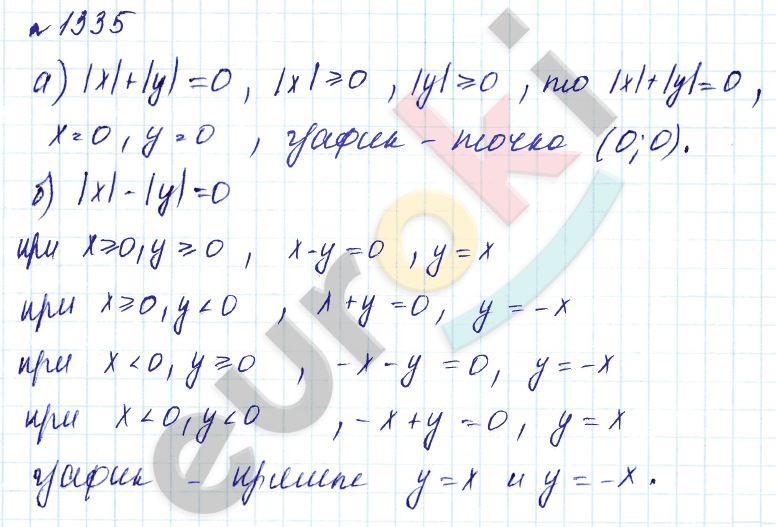 № 1335
а) |x|+|y|=0, |x|≥0, |y|≥0, то |x|+|y|=0,
x=0, y=0, график - точка (0;0).
б) |x|-|y|=0
при x≥0, y≥0, x-y=0, y=x
при x≥0, y<0, x+y=0, y=-x
при x<0, y≥0, -x-y=0, y=-x
при x<0, y<0, -x+y=0, y=x
график - прямые y=x и y=-x.
euroki